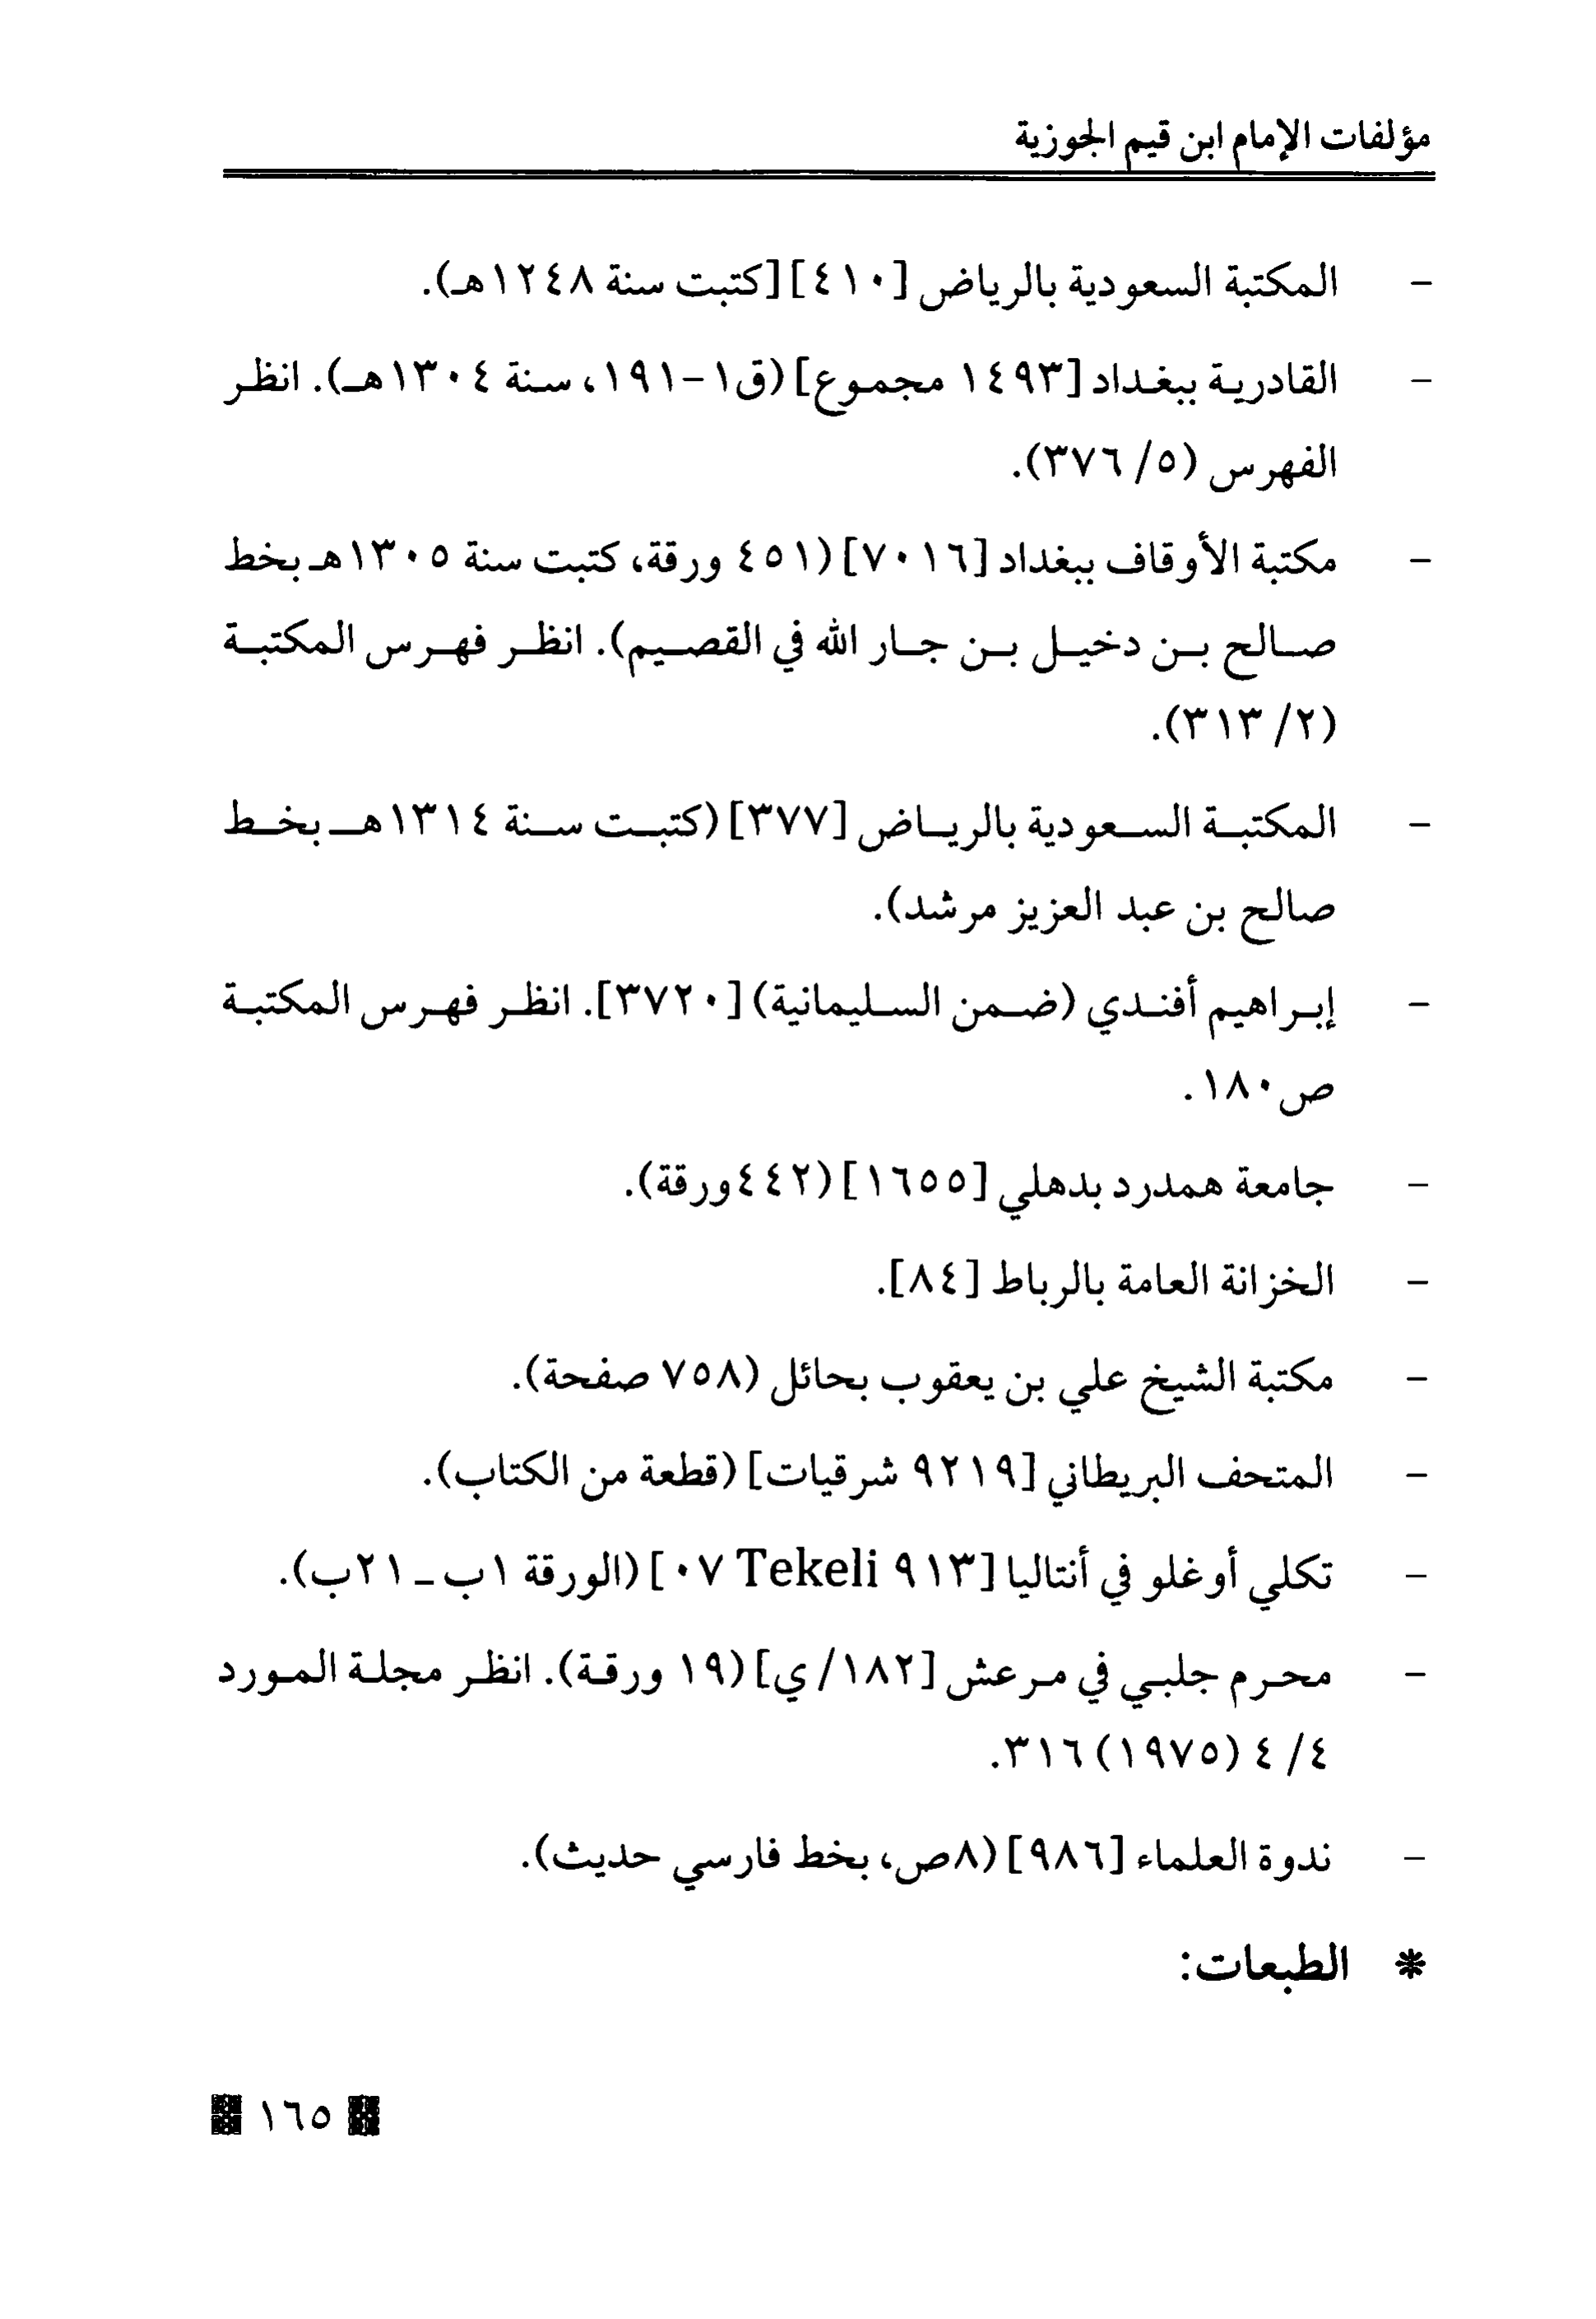 مؤلفات الإمام ابن قيم الجوزية
- المكتبة السعودية بالرياض [٤١٠] [كتبت سنة ١٢٤٨هـ).
- القادرية ببغداد [١٤٩٣ مجموع] (ق١-١٩١، سنة ١٣٠٤هـ). انظر
الفهرس (٥/ ٣٧٦).
- مكتبة الأوقاف ببغداد [٧٠١٦] (٤٥١ ورقة، كتبت سنة ١٣٠٥هـ بخط
صالح بن دخيل بن جار الله في القصيم). انظر فهرس المكتبة
(٢/ ٣١٣).
- المكتبة السعودية بالرياض [٣٧٧] (كتبت سنة ١٣١٤هـ بخط
صالح بن عبد العزيز مرشد).
- إبراهيم أفندي (ضمن السليمانية) [٣٧٢٠]. انظر فهرس المكتبة
ص١٨٠.
- جامعة همدرد بدهلي [١٦٥٥] (٤٤٢ورقة).
- الخزانة العامة بالرباط [٨٤].
- مكتبة الشيخ علي بن يعقوب بحائل (٧٥٨ صفحة).
- المتحف البريطاني [٩٢١٩ شرقيات] (قطعة من الكتاب).
- تكلي أوغلو في أنتاليا [٩١٣ Tekeli ٠٧] (الورقة ١ب ـ ٢١ب).
- محرم جلبي في مرعش [١٨٢/ي] (١٩ ورقة). انظر مجلة المورد
٤/ ٤ (١٩٧٥) ٣١٦.
- ندوة العلماء [٩٨٦] (٨ص، بخط فارسي حديث).
* الطبعات:
١٦٥